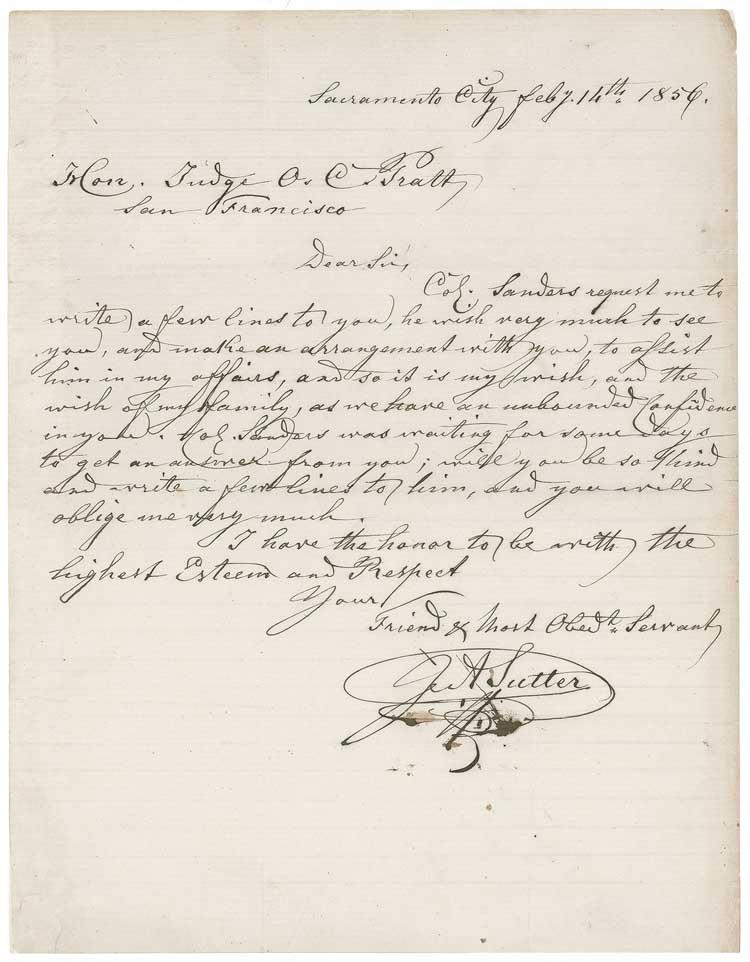 Sacramento City feby. 14th. 1856.
Hon. Judge O. C. Pratt
San Francisco
Dear Sir,
Col. Sanders request me to
write a few lines to you, he wish very much to see
you, and make an arrangement with you, to assist
him in my affairs, and so it is my wish, and the
wish of my family, as we have an unbounded Confidence
in you. Col. Sanders was waiting for some days
to get an answer from you; will you be so kind
and write a few lines to him, and you will
oblige me very much.
I have the honor to be with the
highest Esteem and Respect
Your
Friend & Most Obedt. Servant
J. A. Sutter